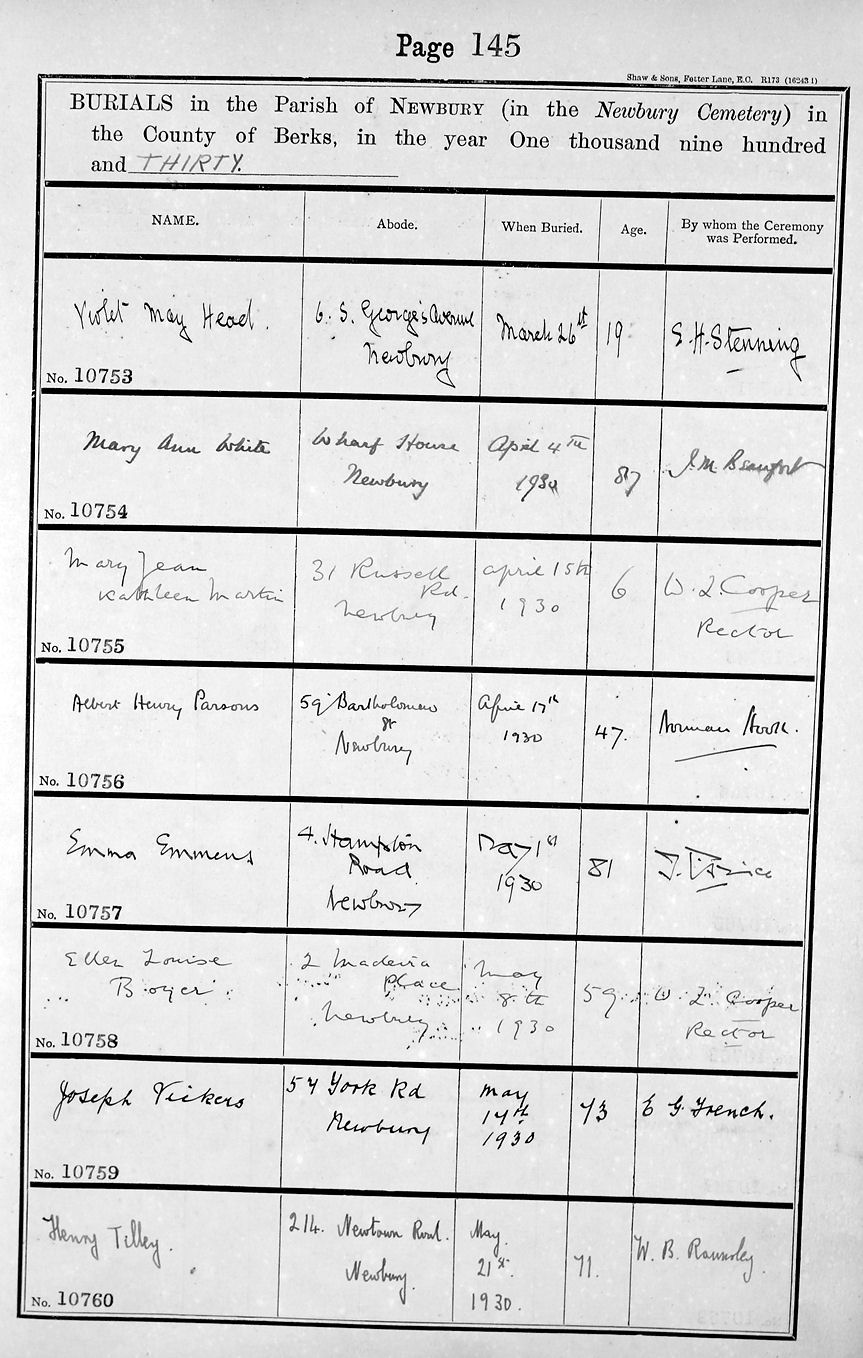 Page 145
Shaw & Sons, Fetter Lane, E.C. R173 (16243 1)
BURIALS in the Parish of NEWBURY (in the Newbury Cemetery) in
the County of Berks, in the year One thousand nine hundred
and THIRTY.
NAME. Abode. When Buried. Age. By whom the Ceremony
was Performed.
Violet May Head. 6. S. George's Avenue March 26st 19 E. H. Stenning
Newbury
No. 10753
Mary Ann White Wharf House April 4TH 87 J. M. Beaufort
Newbury 1930
No. 10754
Mary Jean 31 Russell april 15th 6 W. L. Cooper
Kathleen Martin Rd. 1930 Rector
Newbury
No. 10755
Albert Henry Parsons 59 Bartholomew April 17th 47. Norman
St 1930
Newbury
No. 10756
Emma Emmens 4. Hampton May 1st 81
Road 1930
Newbury
No. 10757
Ellen Louise 2 Madeira May 59 W L Cooper
Boyer Place 8th Rector
Newbury 1930
No. 10758
Joseph Vickers 57 York Rd May 73 E G French.
Newbury 14th
1930
No. 10759
Henry Tilley. 214. Newtown Road. May. 71. W. B.
Newbury. 21st.
1930.
No. 10760